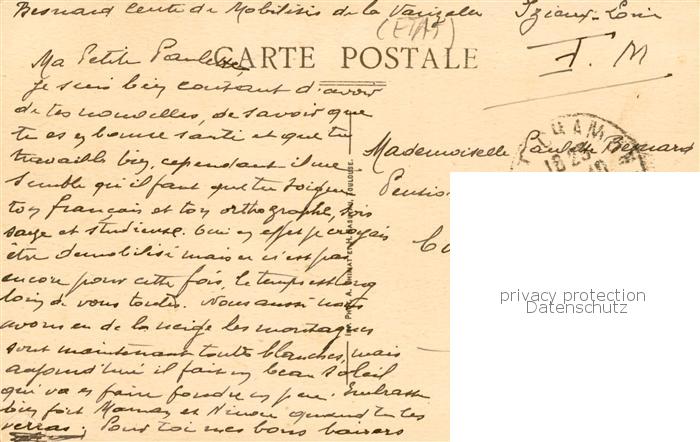 Besnard Centre de Mobilisés de la Varizelle Izieux-Loire
(ETAT)
CARTE POSTALE
F. M
Ma Petite Paulette,
Je suis bien content d'avoir
de tes nouvelles, de savoir que
tu es en bonne santé et que tu
travaille bien, cependant il me
semble qu'il faut que tu soigne
ton français et ton orthographe, sois
sage et studieuse. Oui en effet je croyais
être démobilisé mais ce n'est pas
encore pour cette fois, le temps est long
loin de vous toutes. Nous aussi nous
avons eu de la neige les montagnes
sont maintenant toutes blanches, mais
aujourd'hui il fait un beau soleil
qui va en faire fondre un peu. Embrasse
bien fort Maman et Ninon quand tu les
verras. Pour toi mes bons baisers
Mademoiselle Paulette Besnard
privacy protection
Datenschutz